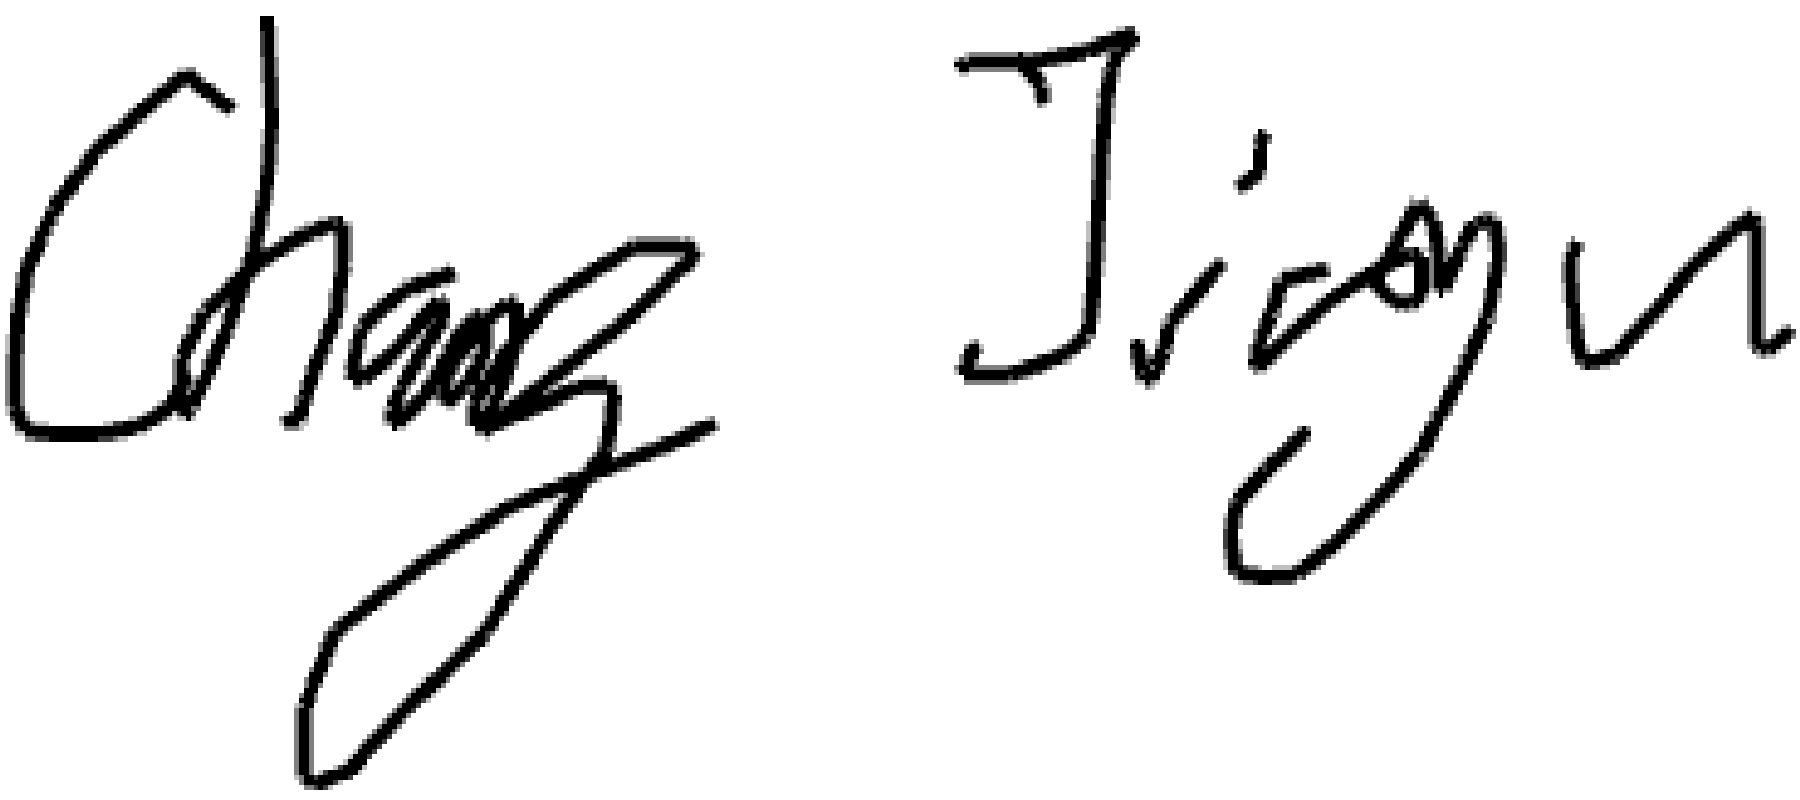 Chang Jiagu